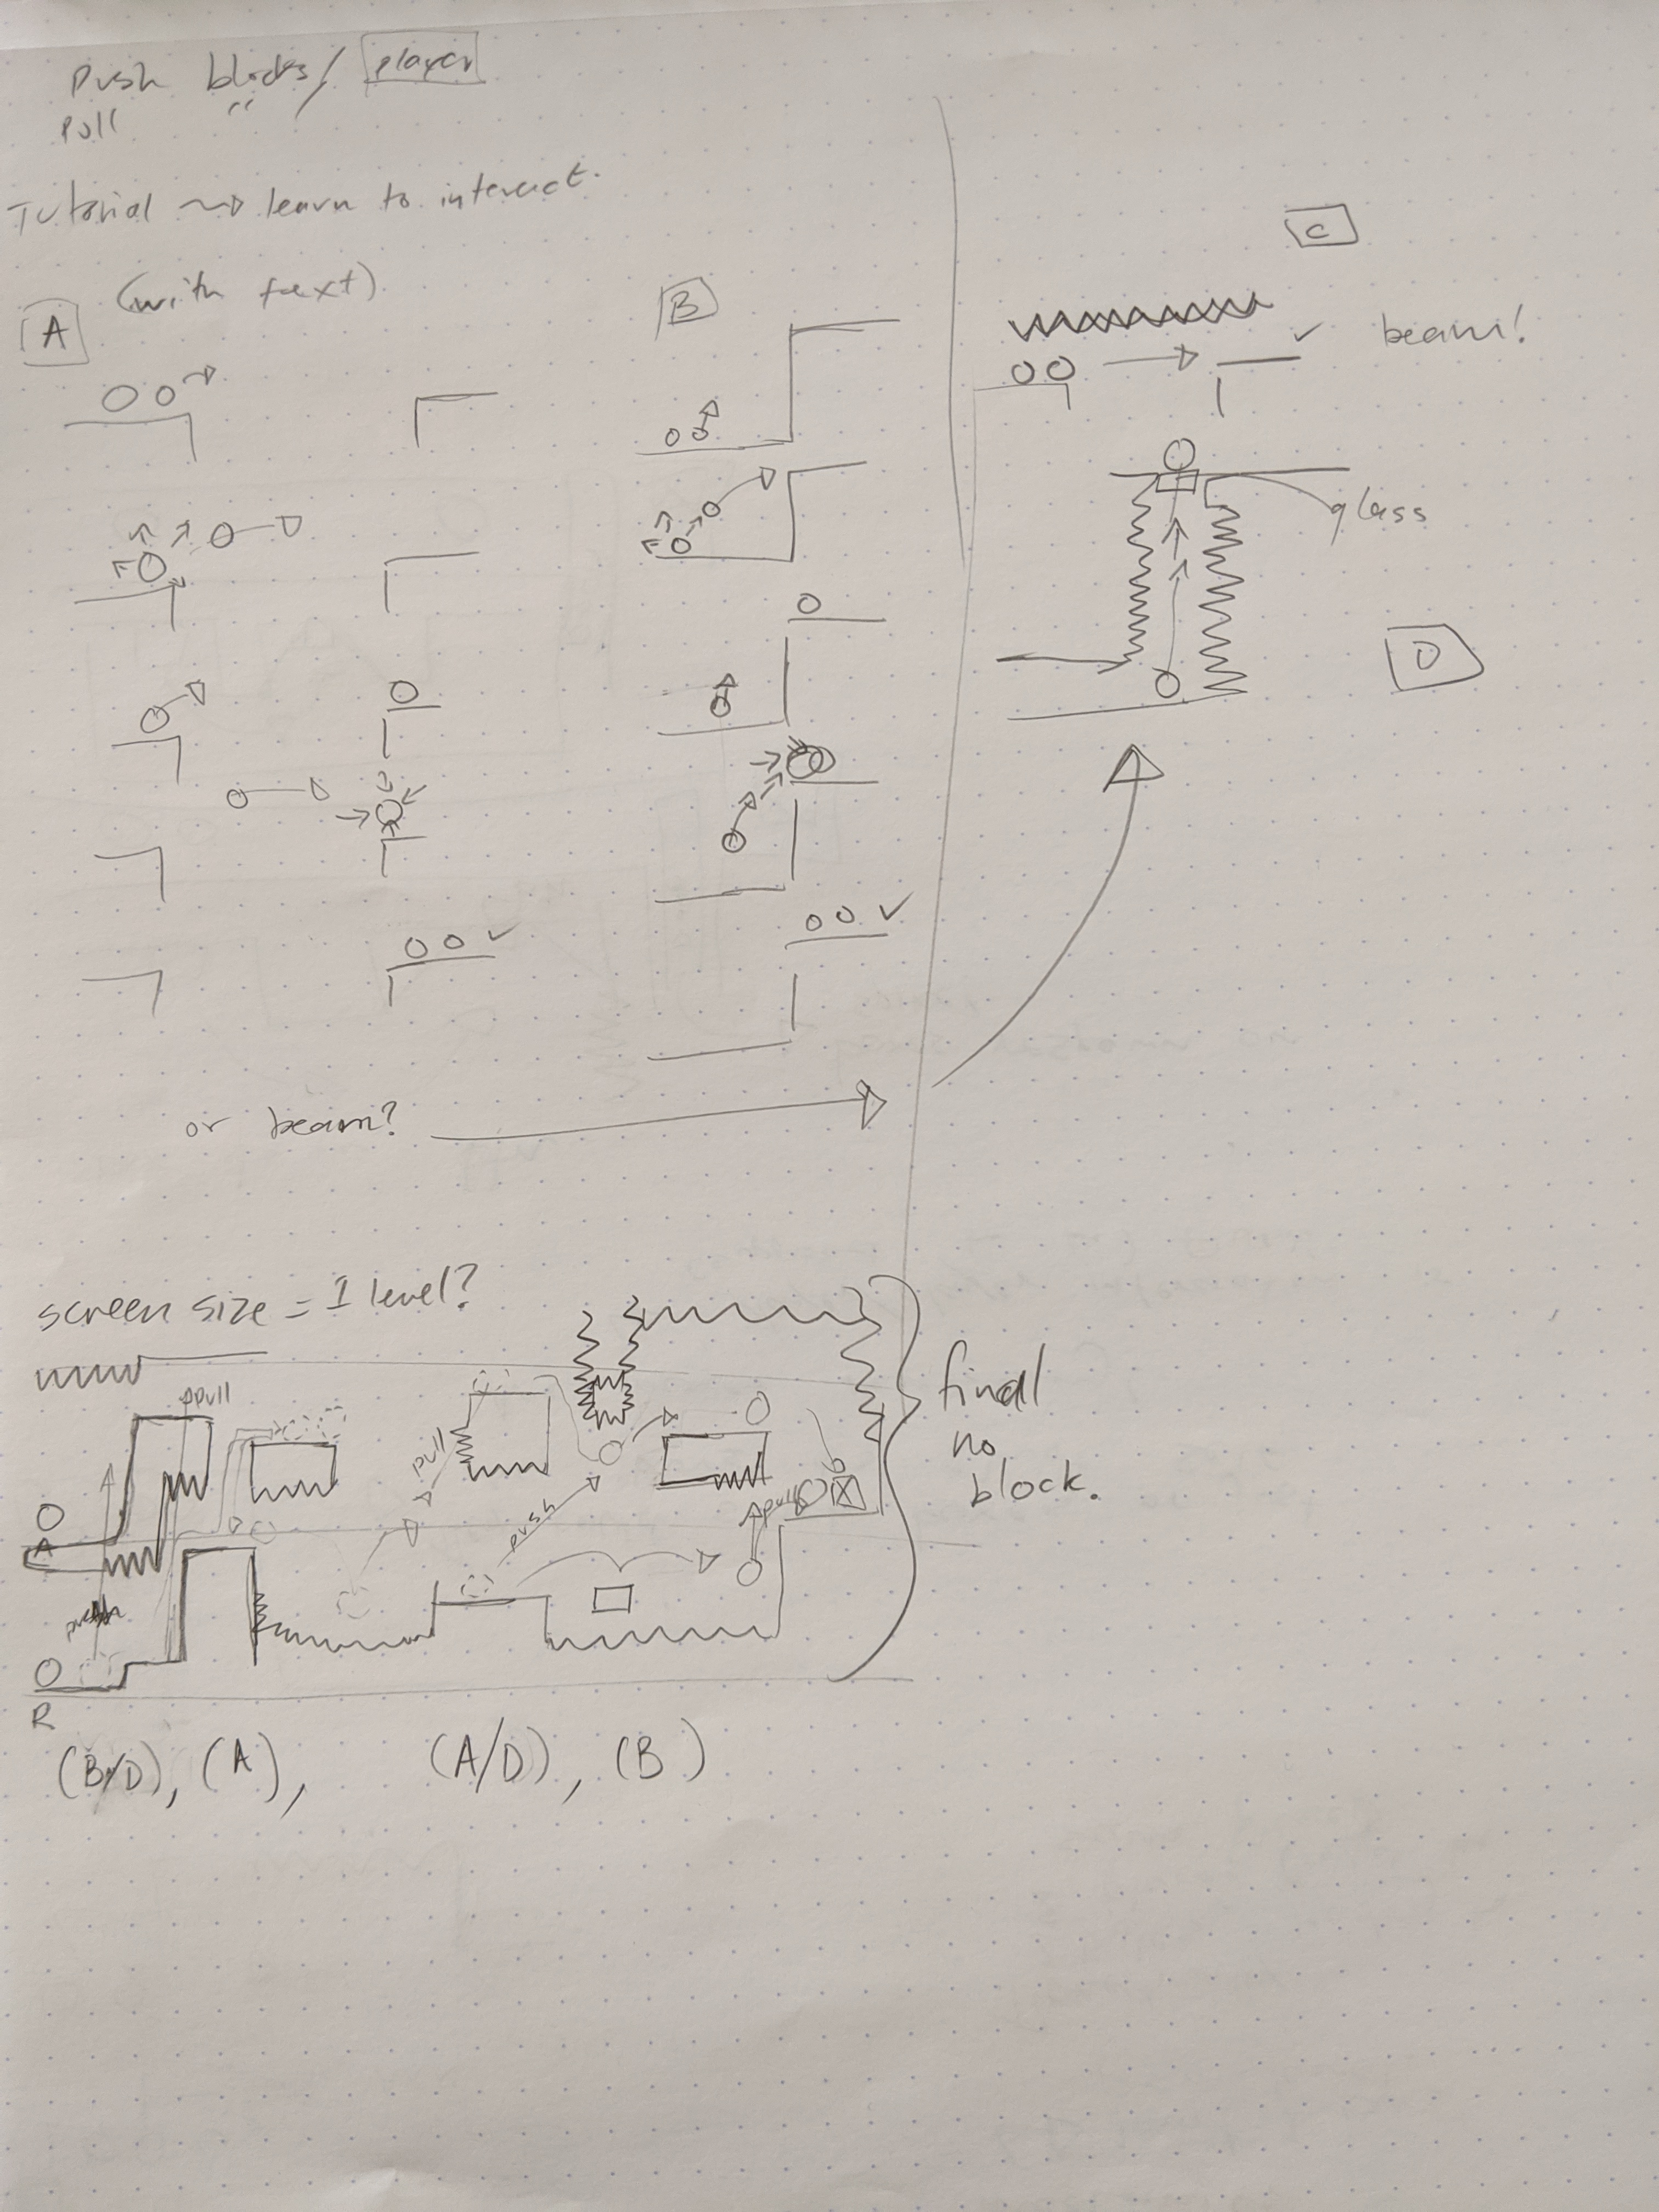 push blocks/ player
pull "
Tutorial ~> learn to interact.
(with text)
A
B
C
beam!
glass
D
or beam?
screen size = 1 level?
pull
pull
push
pull
A
push
R
final
no
block.
(B/D), (A), (A/D), (B)